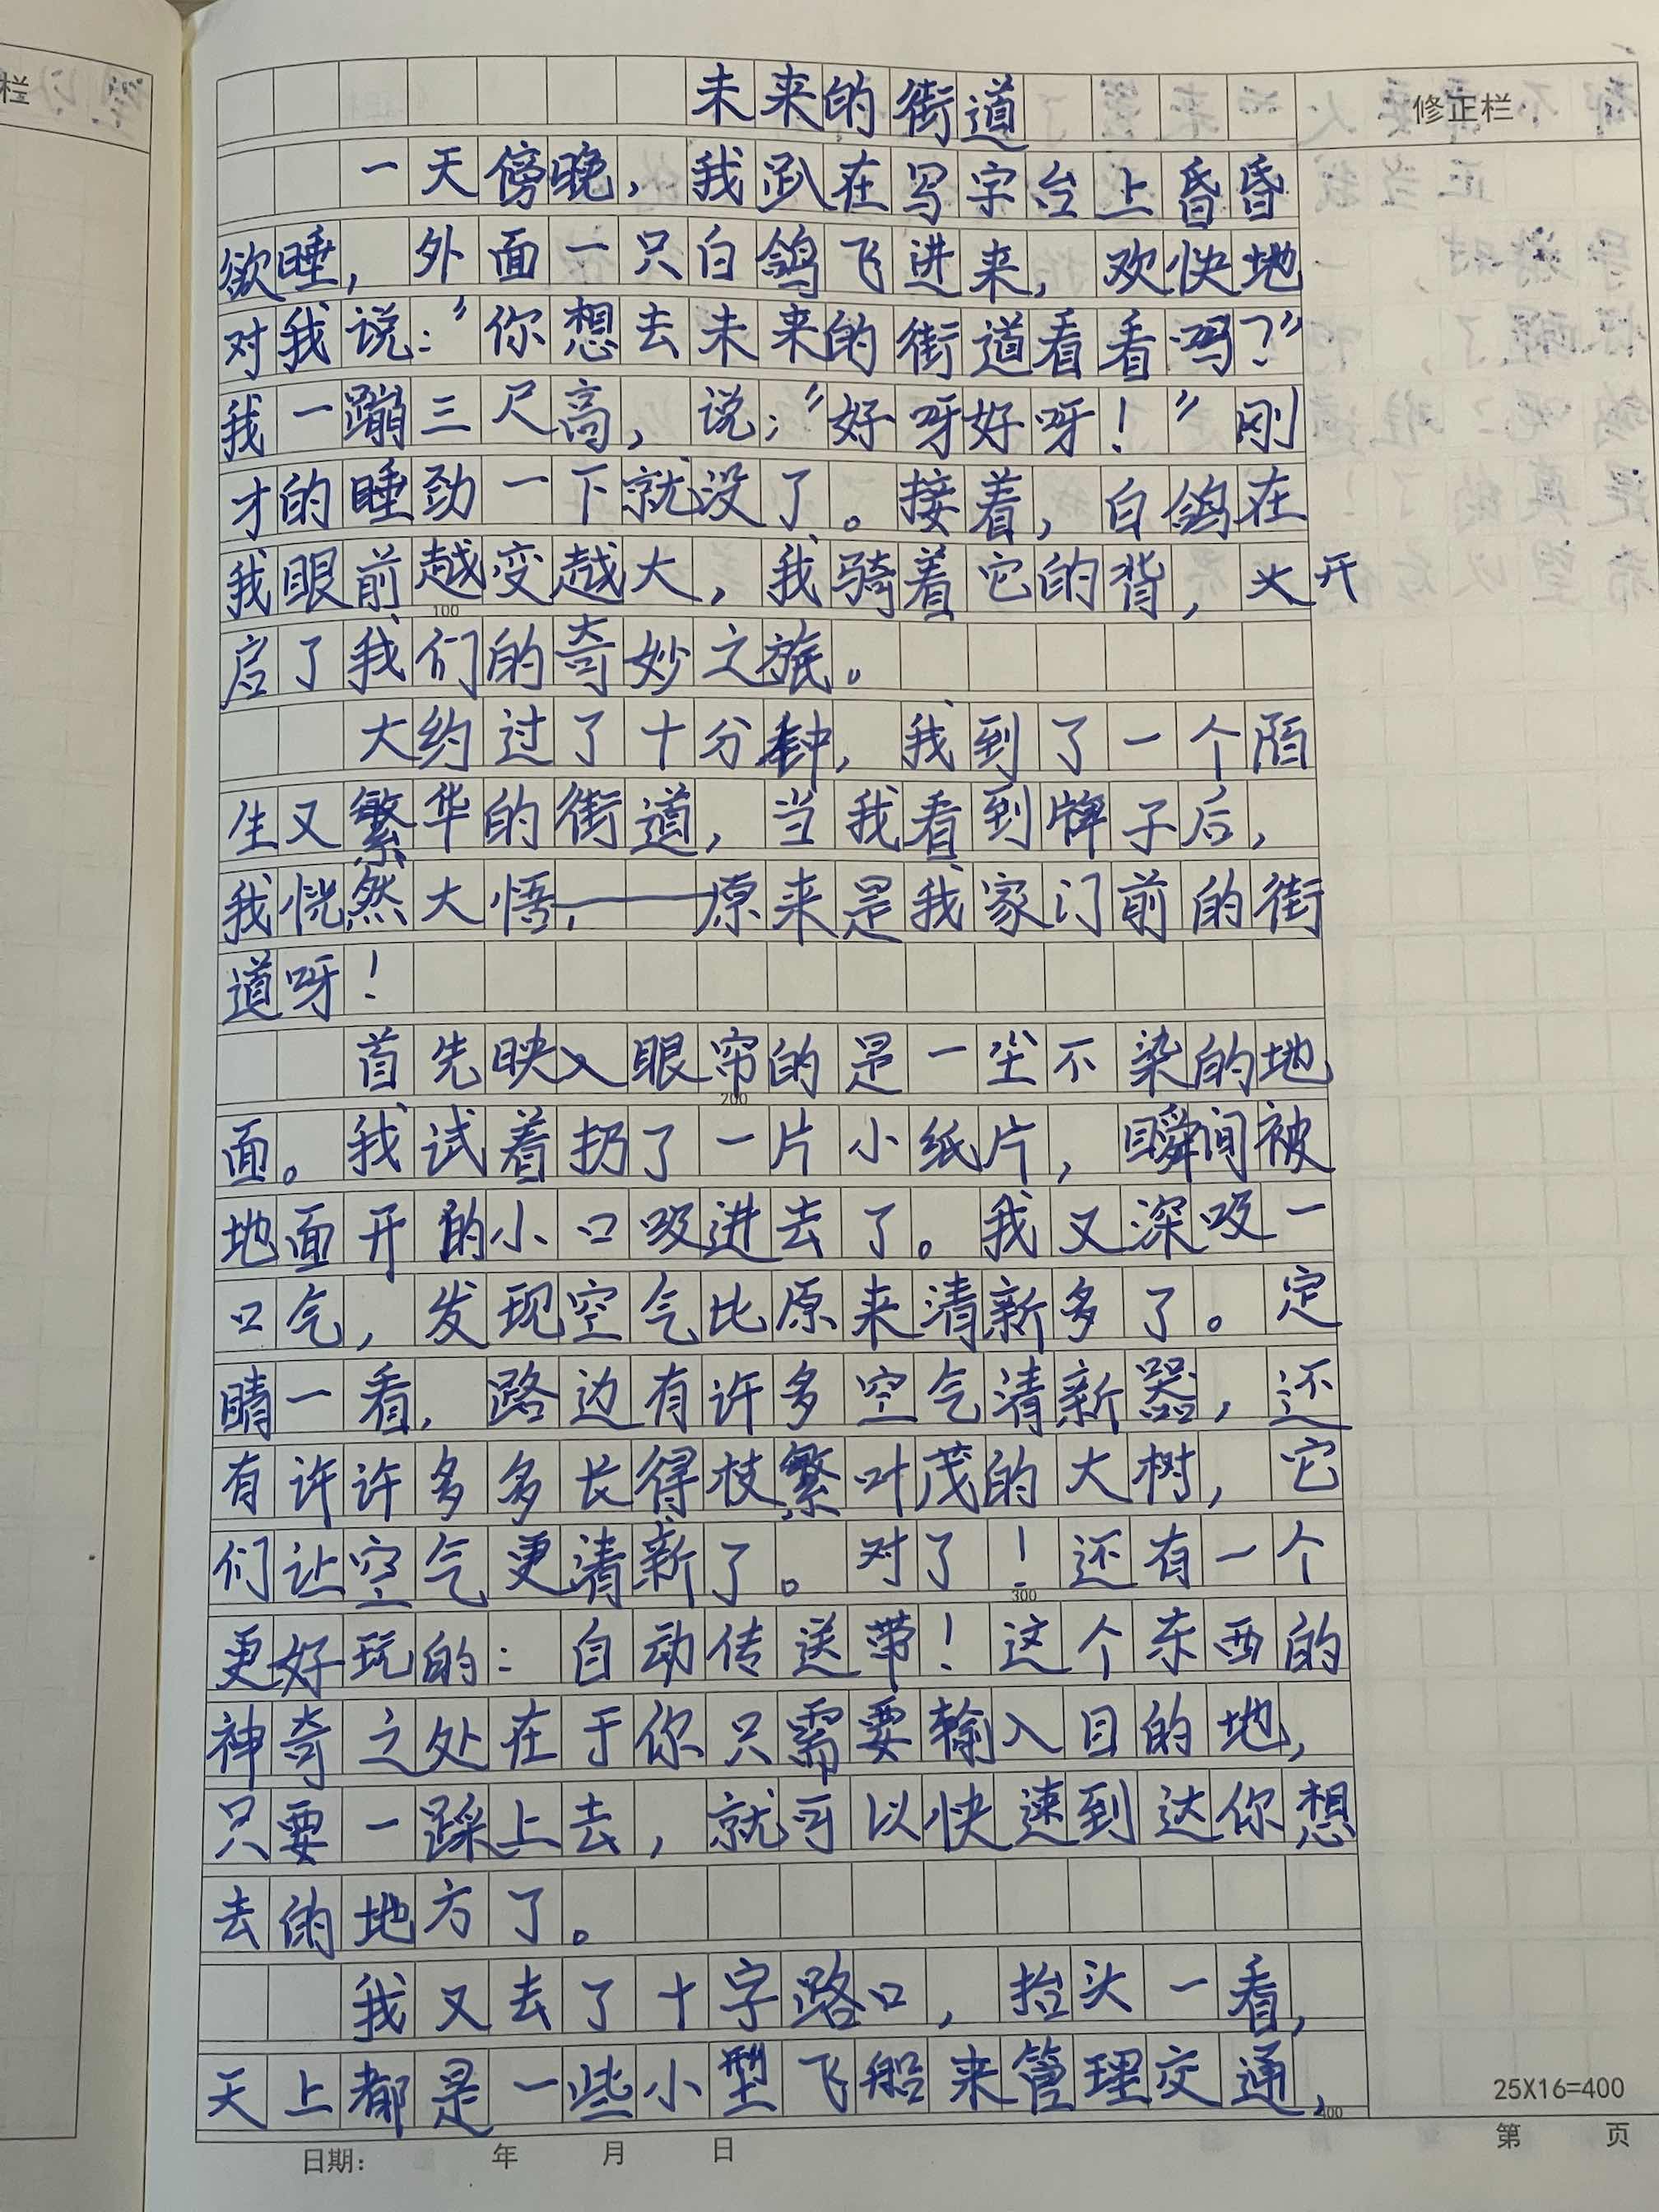 未来的街道
修正栏
一天傍晚，我趴在写字台上昏昏
欲睡，外面一只白鸽飞进来，欢快地
对我说：“你想去未来的街道看看吗？”
我一蹦三尺高，说：“好呀好呀！”刚
才的睡劲一下就没了。接着，白鸽在
我眼前越变越大，我骑着它的背，开
100
启了我们的奇妙之旅。
大约过了十分钟，我到了一个陌
生又繁华的街道，当我看到牌子后，
我恍然大悟，——原来是我家门前的街
道呀！
首先映入眼帘的是一尘不染的地
200
面。我试着扔了一片小纸片，瞬间被
地面开的小口吸进去了。我又深吸一
口气，发现空气比原来清新多了。定
睛一看，路边有许多空气清新器，还
有许许多多长得枝繁叶茂的大树，它
们让空气更清新了。对了！还有一个
300
更好玩的：自动传送带！这个东西的
神奇之处在于你只需要输入目的地，
只要一踩上去，就可以快速到达你想
去的地方了。
我又去了十字路口，抬头一看，
天上都是一些小型飞船来管理交通，
400
25X16=400
日期： 年 月 日
第 页
栏